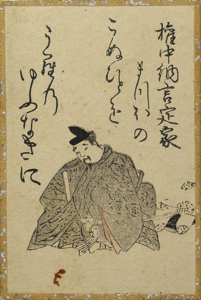 権中納言定家
こぬひとを
まつほの
うらの
ゆふなぎに